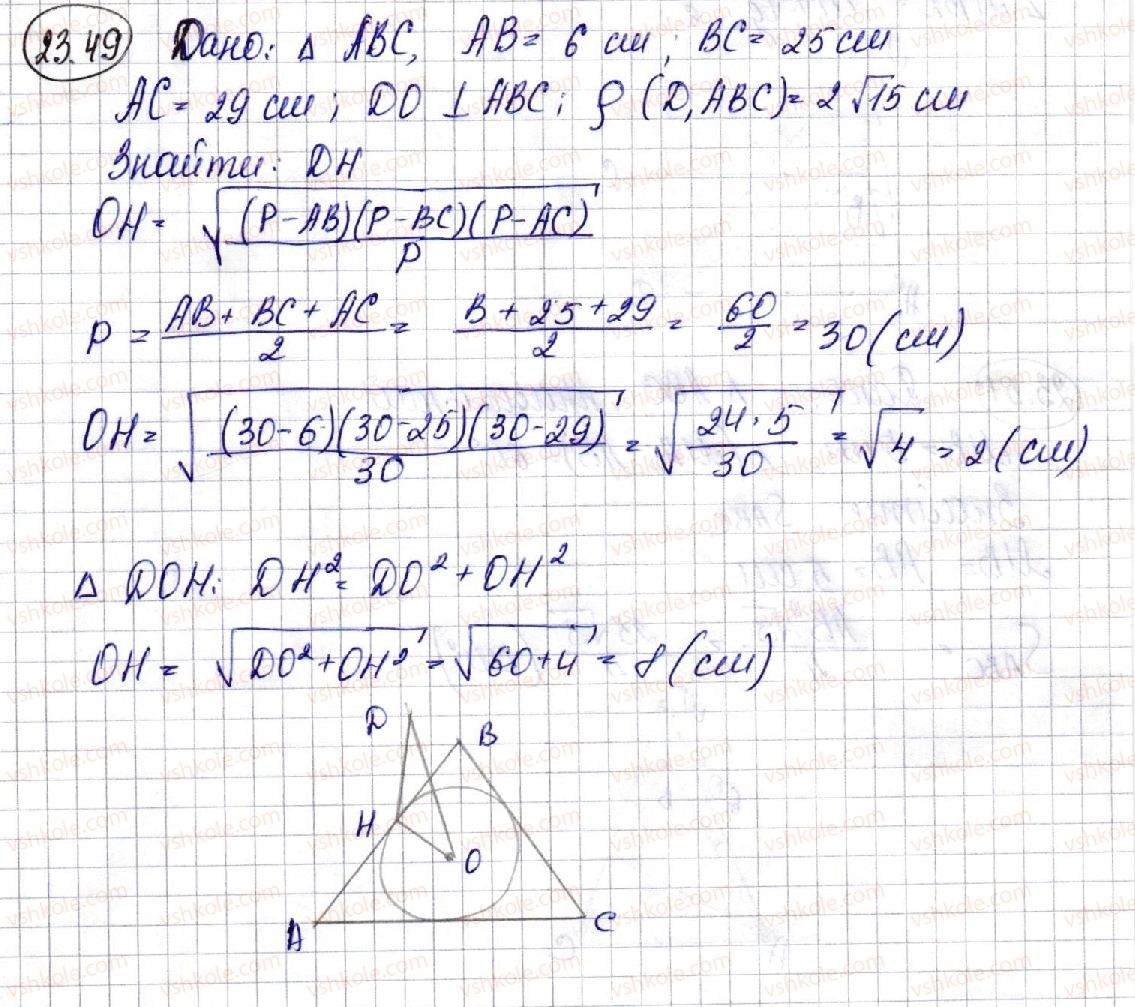 23.49 Дано: △ ABC, AB = 6 см; BC = 25 см
AC = 29 см; DO ⊥ ABC; ρ (D, ABC) = 2√15 см
Знайти: DH
OH = √((P-AB)(P-BC)(P-AC)/P)
P = (AB + BC + AC)/2 = (B + 25 + 29)/2 = 60/2 = 30 (см)
OH = √((30-6)(30-25)(30-29)/30) = √(24·5/30) = √4 = 2 (см)
△ DOH: DH² = DO² + OH²
OH = √(DO² + OH²) = √(60+4) = 8 (см)
D
B
H
O
A
C
vshkole.com